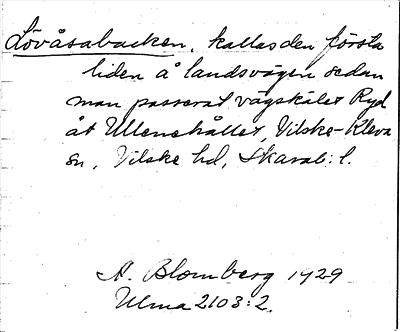 Lövåsabacken, kallas den första
liden å landsvägen sedan
man passerat vägskälet Ryd
åt Ullenehållet, Vilske-Kleva
sn, Vilske hd, Skarab: l.
A. Blomberg 1929
Ulma 2103:2.